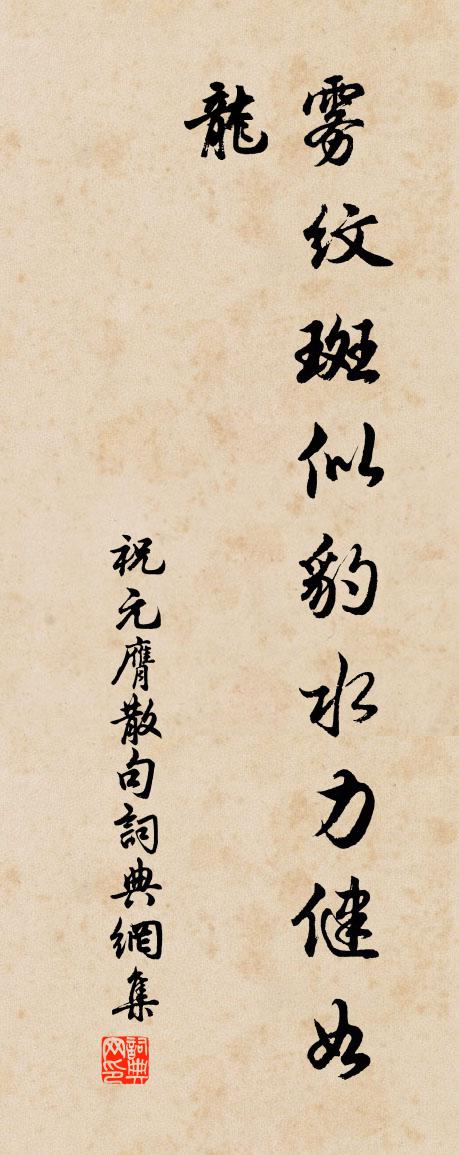 雾纹斑似豹水力健如
龍
祝元膺散句詞典網集
詞典
网印